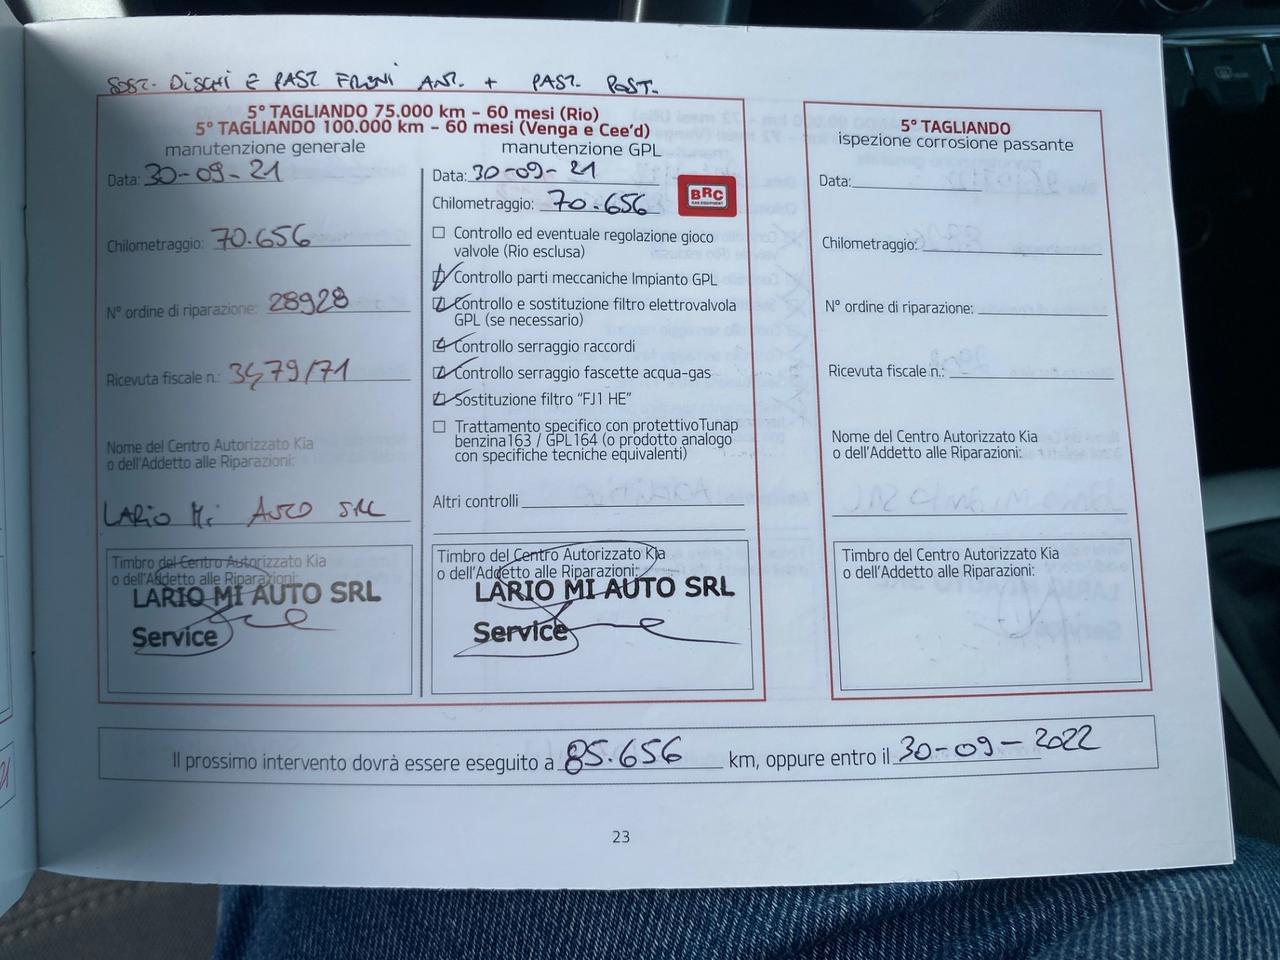 SOST. DISCHI E PAST. FRENI ANT. + PAST. POST.
5° TAGLIANDO 75.000 km – 60 mesi (Rio)
5° TAGLIANDO 100.000 km – 60 mesi (Venga e Cee'd)
manutenzione generale
Data: 30-09-21
Chilometraggio: 70.656
N° ordine di riparazione: 28928
Ricevuta fiscale n.: 3479/71
Nome del Centro Autorizzato Kia
o dell'Addetto alle Riparazioni:
LARIO Mi AUTO SRL
Timbro del Centro Autorizzato Kia
o dell'Addetto alle Riparazioni:
LARIO MI AUTO SRL
Service
manutenzione GPL
Data: 30-09-21
Chilometraggio: 70.656
BRC
GAS EQUIPMENT
Controllo ed eventuale regolazione gioco
valvole (Rio esclusa)
Controllo parti meccaniche Impianto GPL
Controllo e sostituzione filtro elettrovalvola
GPL (se necessario)
Controllo serraggio raccordi
Controllo serraggio fascette acqua-gas
Sostituzione filtro “FJ1 HE”
Trattamento specifico con protettivo Tunap
benzina 163 / GPL 164 (o prodotto analogo
con specifiche tecniche equivalenti)
Altri controlli
Timbro del Centro Autorizzato Kia
o dell'Addetto alle Riparazioni:
LARIO MI AUTO SRL
Service
5° TAGLIANDO
ispezione corrosione passante
Data:
Chilometraggio:
N° ordine di riparazione:
Ricevuta fiscale n.:
Nome del Centro Autorizzato Kia
o dell'Addetto alle Riparazioni:
Timbro del Centro Autorizzato Kia
o dell'Addetto alle Riparazioni:
Il prossimo intervento dovrà essere eseguito a 85.656 km, oppure entro il 30-09-2022
23